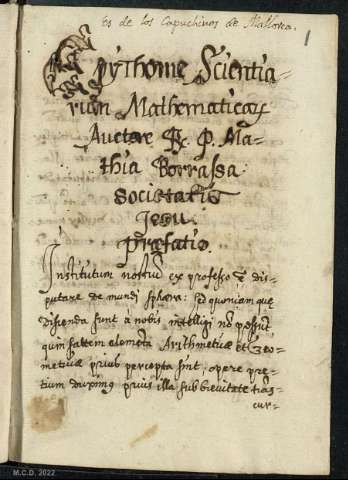 Es de los Capuchinos de Mallorca.
1
Epythome Scientia-
rum Mathematicaru
Auctore R. P. Ma-
thia Borrassa
Societatis
Jesu
Præfatio.
Institutum nostrũ ex professo ẽ dis-
putare de mundi sphæra: sed quoniam quę
disenda sunt à nobis intelligi nõ possũt
quin saltem elemẽta Arithmeticæ et Geo-
metricæ prius percepta sint, opere pre-
tium duximus prius illa sub brevitate trãs
cur-
M.C.D. 2022